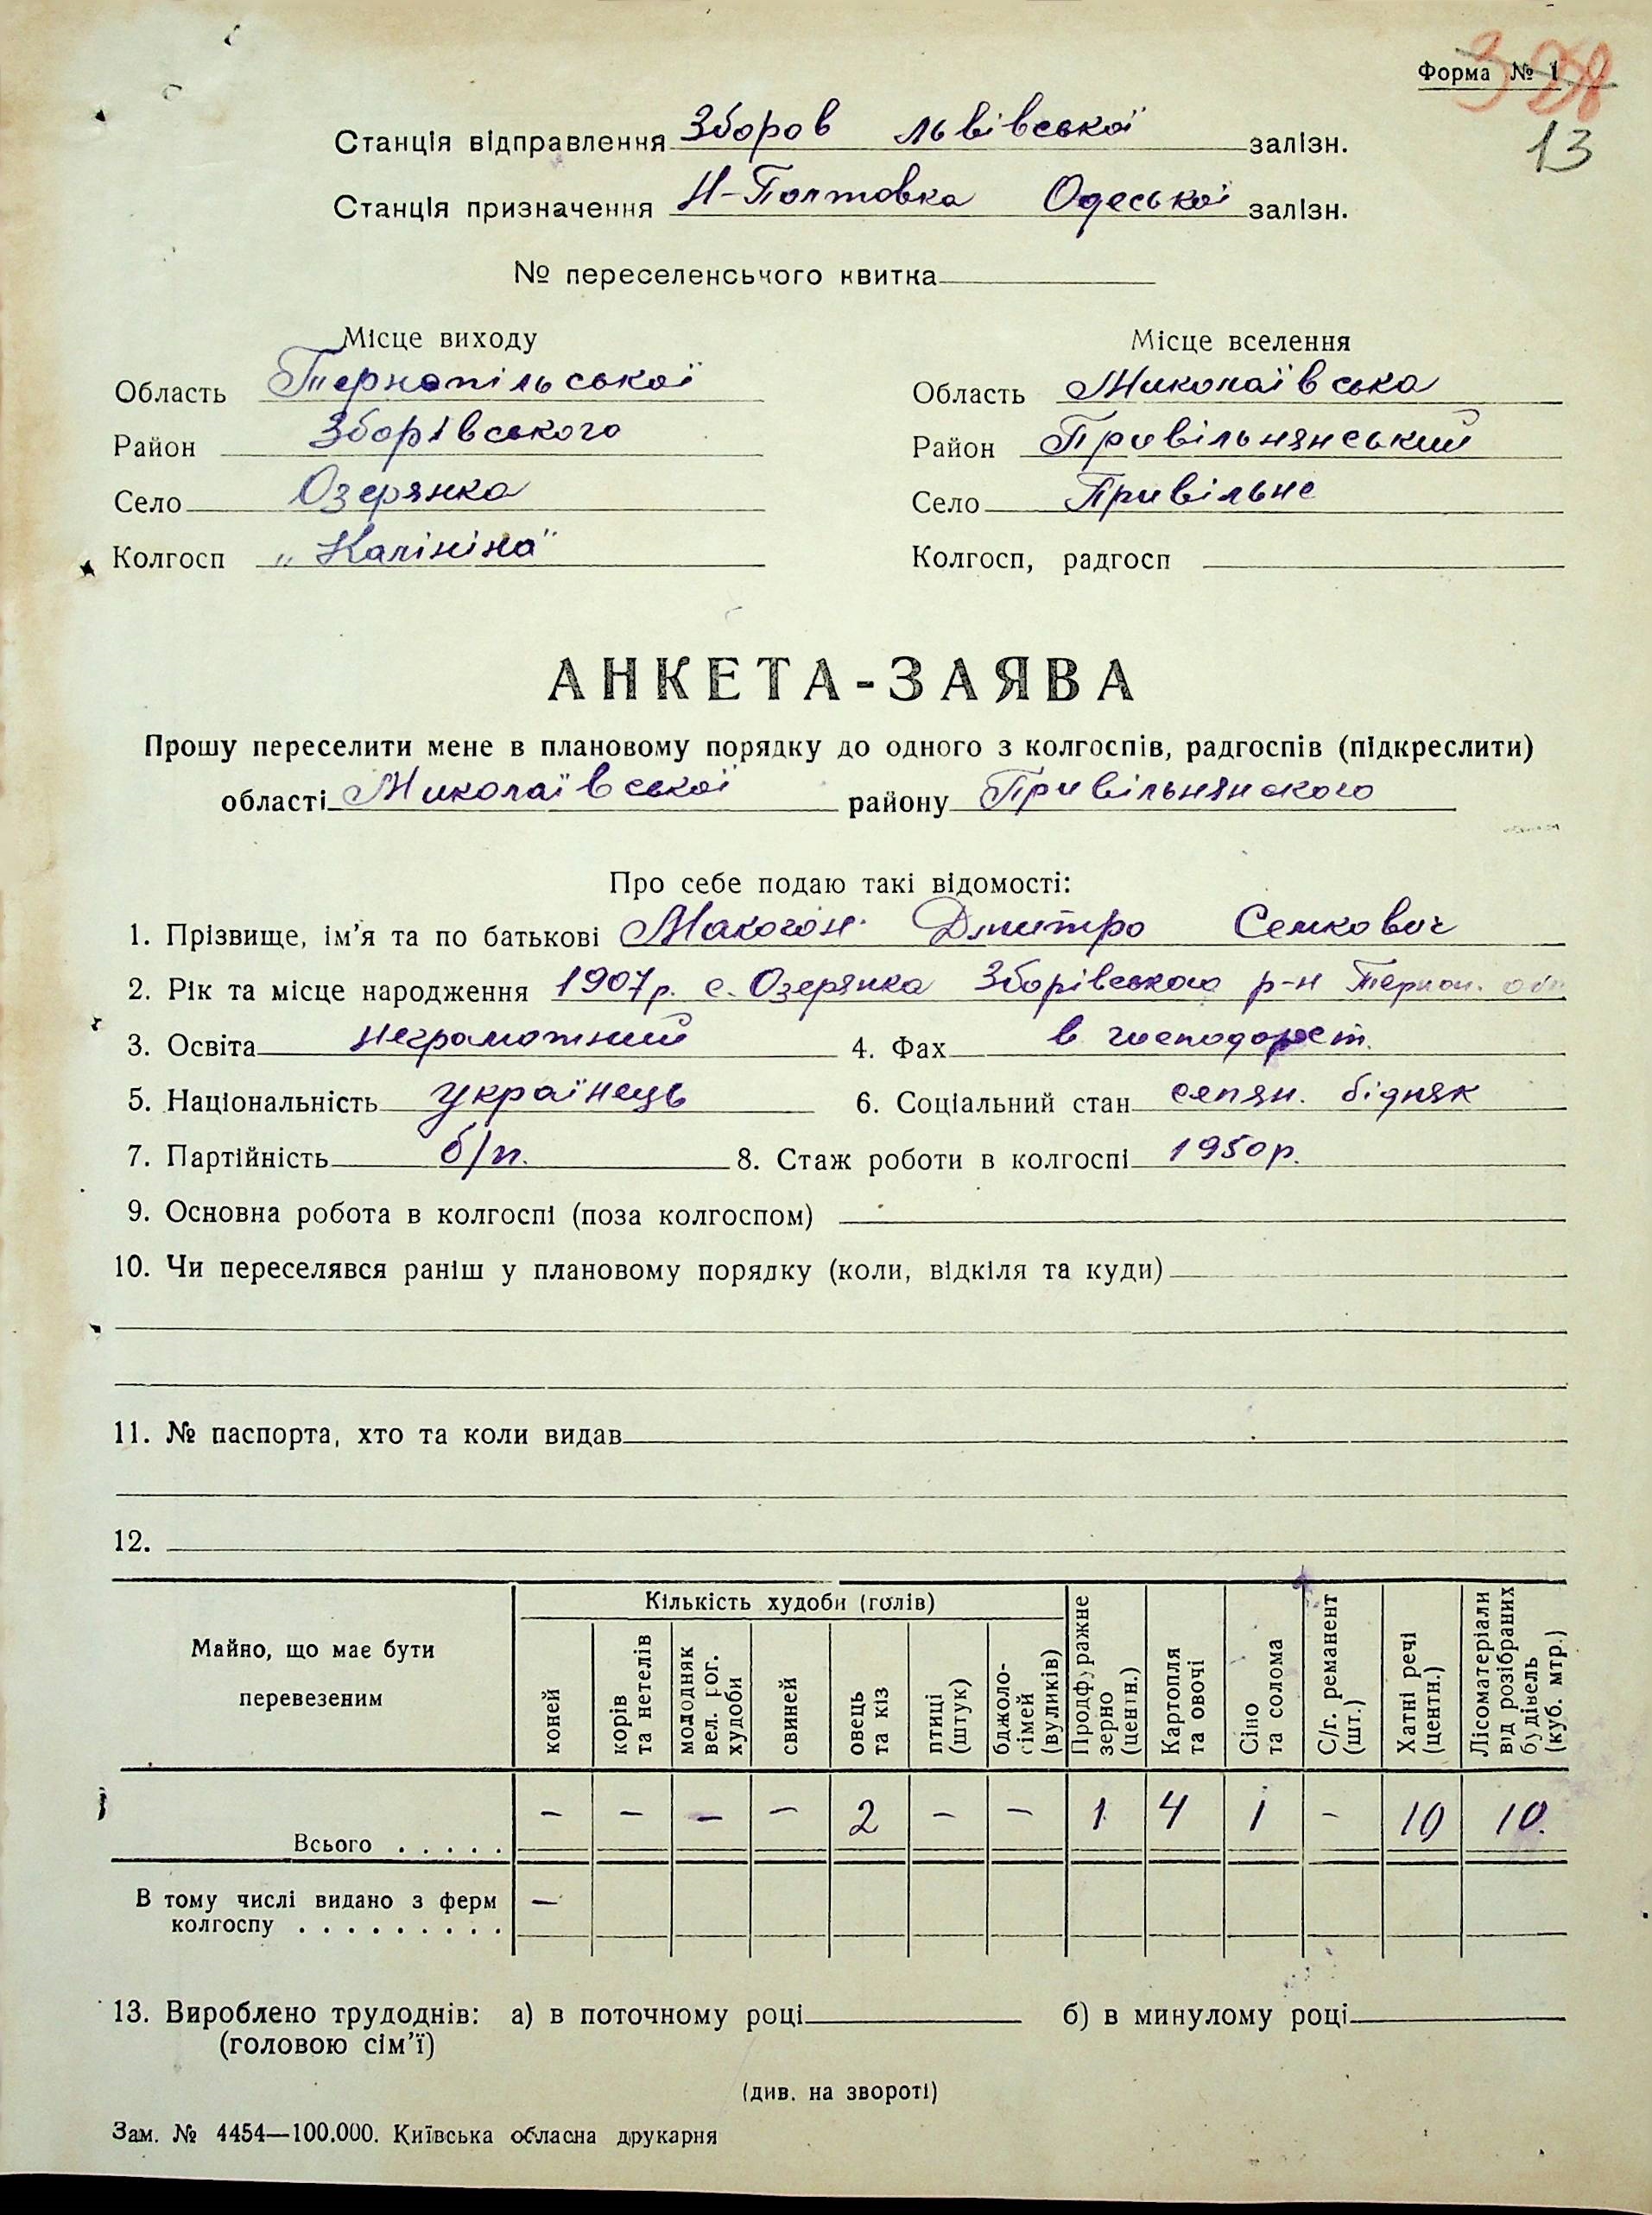 Форма № 1
13
Станція відправлення Зборов Львівської залізн.
Станція призначення Н-Полтовка Одеської залізн.
№ переселенського квитка
Місце виходу
Область Тернопільської
Район Зборівського
Село Озерянка
Колгосп „Калініна"
Місце вселення
Область Миколаївська
Район Привільнянський
Село Привільне
Колгосп, радгосп
АНКЕТА-ЗАЯВА
Прошу переселити мене в плановому порядку до одного з колгоспів, радгоспів (підкреслити)
області Миколаївської району Привільнянского
Про себе подаю такі відомості:
1. Прізвище, ім'я та по батькові Макогон Дмитро Семкович
2. Рік та місце народження 1907р. с. Озерянка Зборівського р-н Терноп. обл
3. Освіта неграмотний 4. Фах в господарст.
5. Національність українець 6. Соціальний стан селян. бідняк
7. Партійність б/п. 8. Стаж роботи в колгоспі 1950р.
9. Основна робота в колгоспі (поза колгоспом)
10. Чи переселявся раніш у плановому порядку (коли, відкіля та куди)
11. № паспорта, хто та коли видав
12.
Майно, що має бути перевезеним
Кількість худоби (голів)
коней
корів та нетелів
молодняк вел. рог. худоби
свиней
овець та кіз
птиці (штук)
бджолосімей (вуликів)
Продфуражне зерно (центн.)
Картопля та овочі
Сіно та солома
С/г. реманент (шт.)
Хатні речі (центн.)
Лісоматеріали від розібраних будівель (куб. мтр.)
Всього . . . . . – – – – 2 – – 1 4 1 – 10 10.
В тому числі видано з ферм —
колгоспу . . . . . . . . .
13. Вироблено трудоднів: а) в поточному році б) в минулому році
(головою сім'ї)
(див. на звороті)
Зам. № 4454—100.000. Київська обласна друкарня